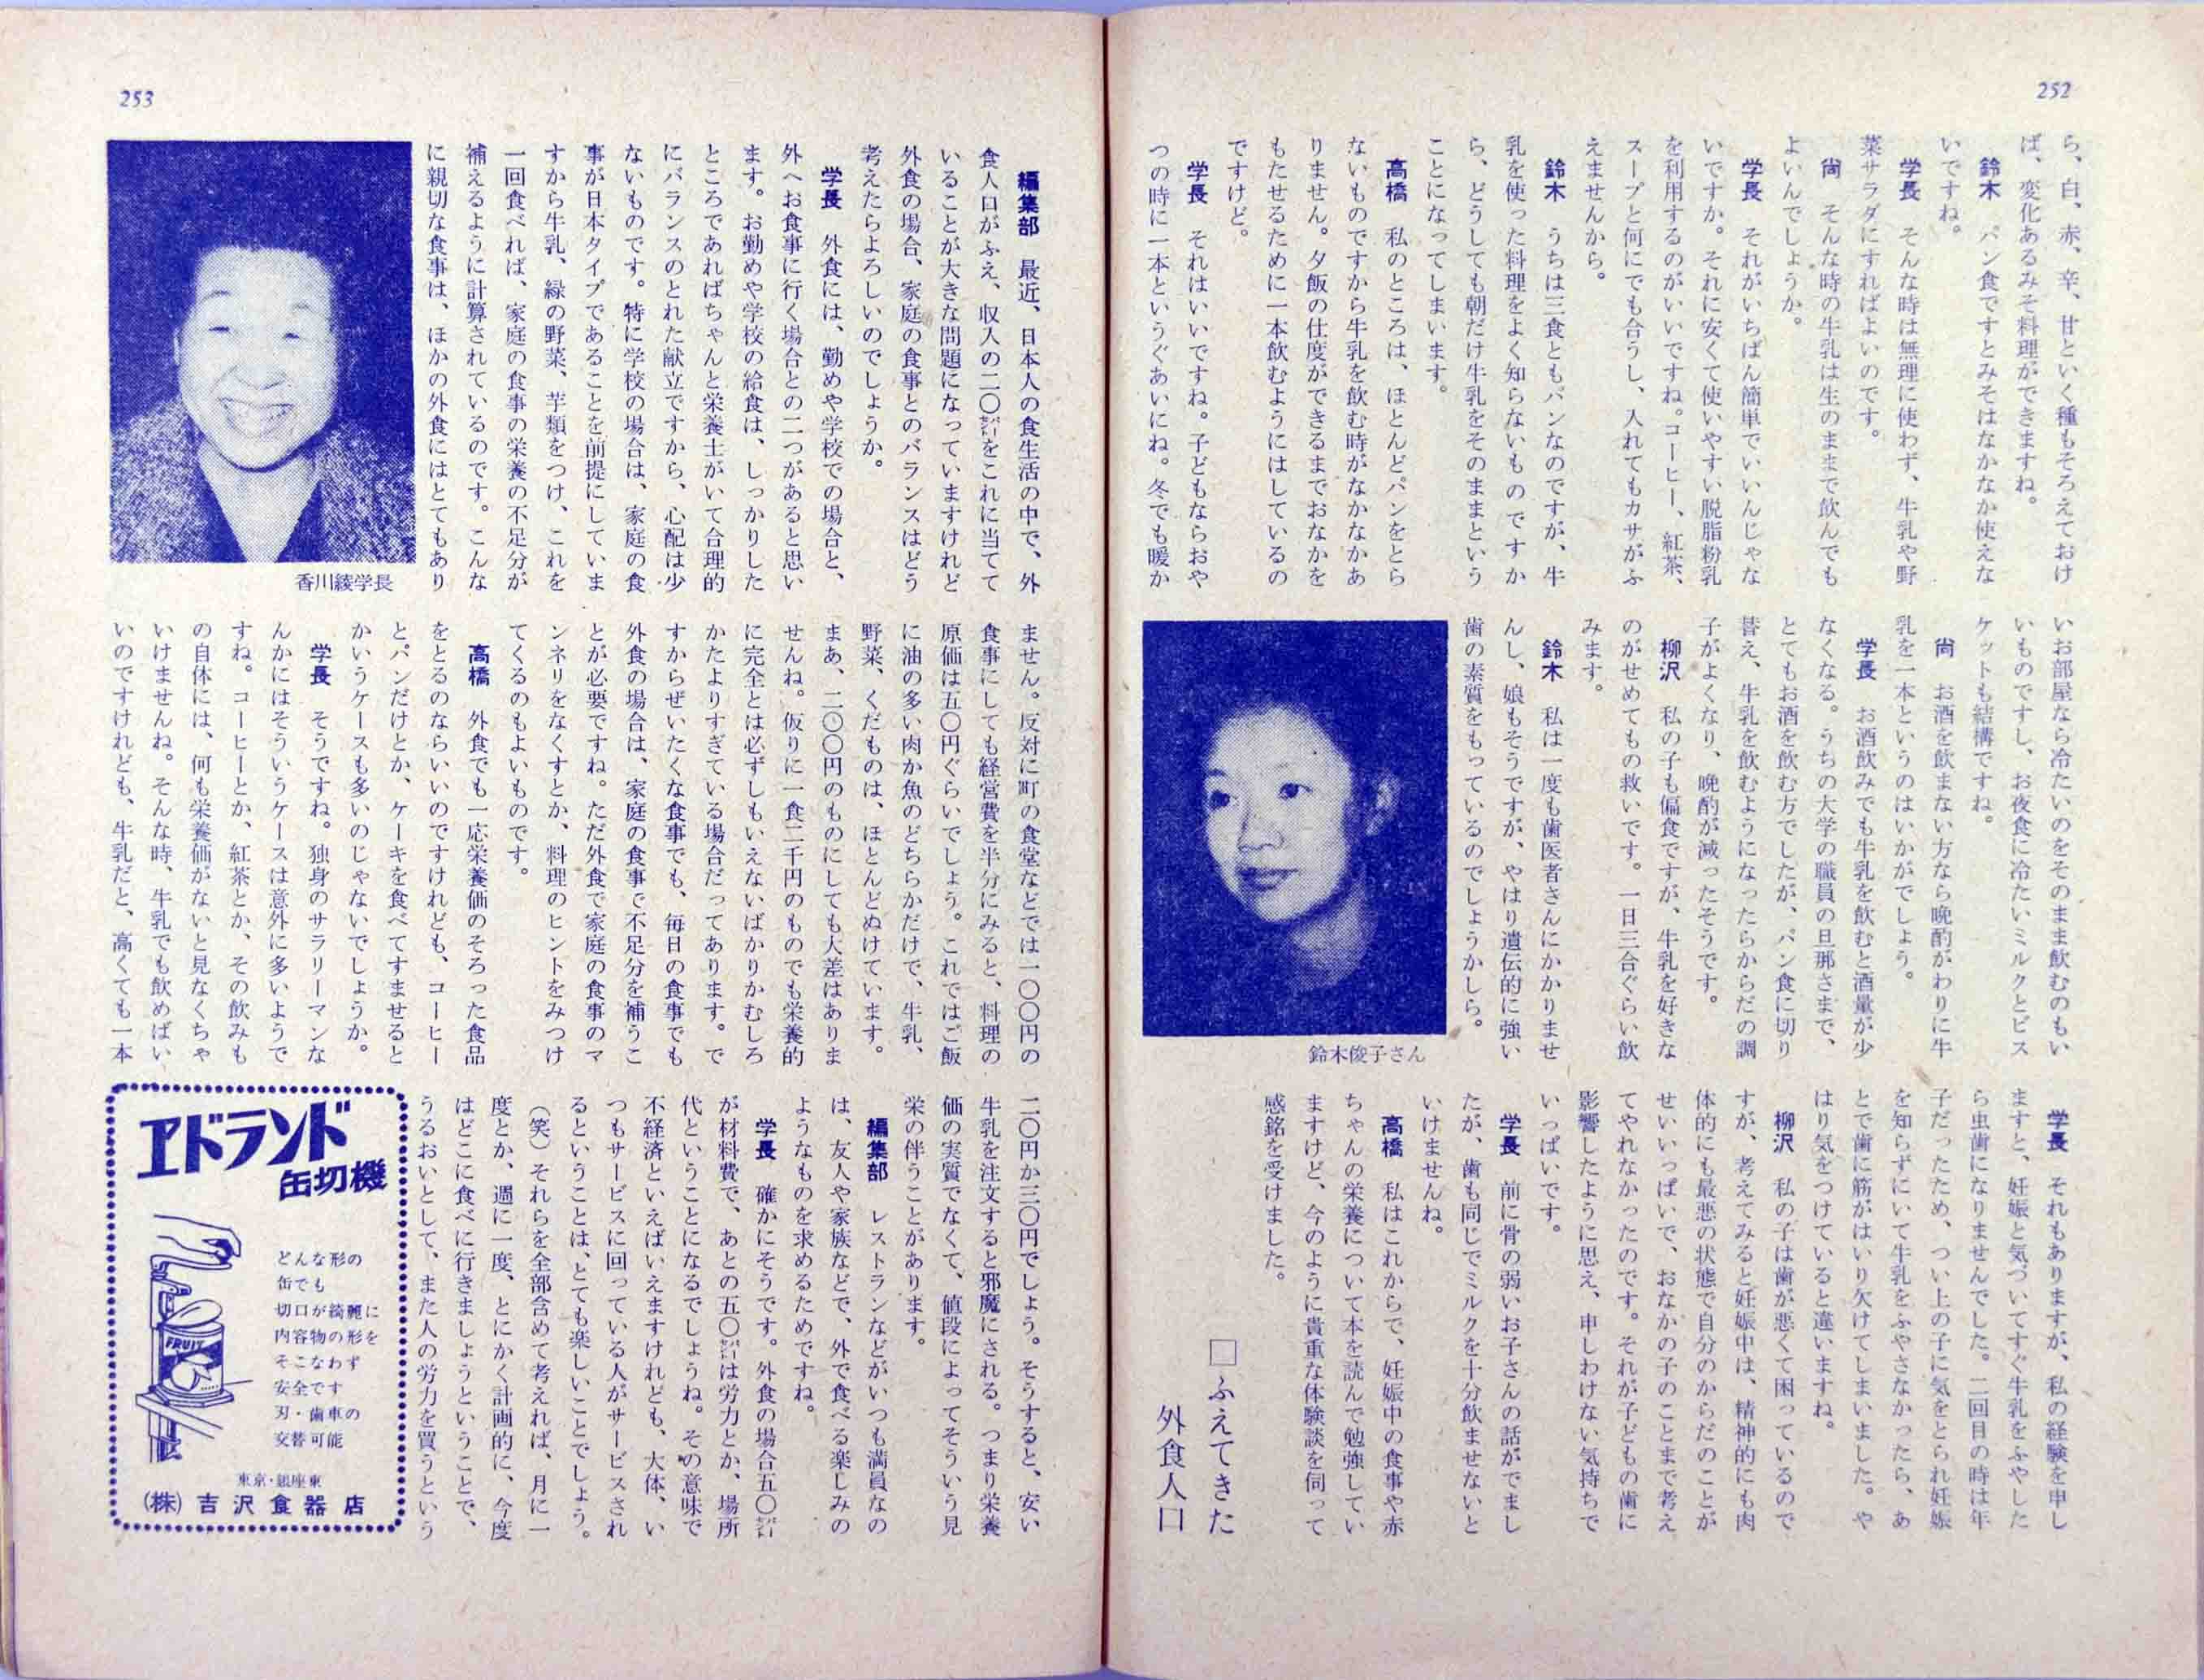 252
ら、白、赤、辛、甘といく種もそろえておけ
ば、変化あるみそ料理ができますね。
鈴木　パン食ですとみそはなかなか使えな
いですね。
学長　そんな時は無理に使わず、牛乳や野
菜サラダにすればよいのです。
尙　そんな時の牛乳は生のままで飲んでも
よいんでしょうか。
学長　それがいちばん簡単でいいんじゃな
いですか。それに安くて使いやすい脱脂粉乳
を利用するのがいいですね。コーヒー、紅茶、
スープと何にでも合うし、入れてもカサがふ
えませんから。
鈴木　うちは三食ともパンなのですが、牛
乳を使った料理をよく知らないものですか
ら、どうしても朝だけ牛乳をそのままという
ことになってしまいます。
高橋　私のところは、ほとんどパンをとら
ないものですから牛乳を飲む時がなかなかあ
りません。夕飯の仕度ができるまでおなかを
もたせるために一本飲むようにはしているの
ですけど。
学長　それはいいですね。子どもならおや
つの時に一本というぐあいにね。冬でも暖か
いお部屋なら冷たいのをそのまま飲むのもい
いものですし、お夜食に冷たいミルクとビス
ケットも結構ですね。
尙　お酒を飲まない方なら晩酌がわりに牛
乳を一本というのはいかがでしょう。
学長　お酒飲みでも牛乳を飲むと酒量が少
なくなる。うちの大学の職員の旦那さまで、
とてもお酒を飲む方でしたが、パン食に切り
替え、牛乳を飲むようになったらからだの調
子がよくなり、晩酌が減ったそうです。
柳沢　私の子も偏食ですが、牛乳を好きな
のがせめてもの救いです。一日三合ぐらい飲
みます。
鈴木　私は一度も歯医者さんにかかりませ
んし、娘もそうですが、やはり遺伝的に強い
歯の素質をもっているのでしょうかしら。
鈴木俊子さん
学長　それもありますが、私の経験を申し
ますと、妊娠と気づいてすぐ牛乳をふやした
ら虫歯になりませんでした。二回目の時は年
子だったため、つい上の子に気をとられ妊娠
を知らずにいて牛乳をふやさなかったら、あ
とで歯に筋がはいり欠けてしまいました。や
はり気をつけていると違いますね。
柳沢　私の子は歯が悪くて困っているので
すが、考えてみると妊娠中は、精神的にも肉
体的にも最悪の状態で自分のからだのことが
せいいっぱいで、おなかの子のことまで考え
てやれなかったのです。それが子どもの歯に
影響したように思え、申しわけない気持ちで
いっぱいです。
学長　前に骨の弱いお子さんの話がでまし
たが、歯も同じでミルクを十分飲ませないと
いけませんね。
高橋　私はこれからで、妊娠中の食事や赤
ちゃんの栄養について本を読んで勉強してい
ますけど、今のように貴重な体験談を伺って
感銘を受けました。
□ふえてきた
外食人口
253
編集部　最近、日本人の食生活の中で、外
食人口がふえ、収入の二〇㌫をこれに当てて
いることが大きな問題になっていますけれど
外食の場合、家庭の食事とのバランスはどう
考えたらよろしいのでしょうか。
学長　外食には、勤めや学校での場合と、
外へお食事に行く場合との二つがあると思い
ます。お勤めや学校の給食は、しっかりした
ところであればちゃんと栄養士がいて合理的
にバランスのとれた献立ですから、心配は少
ないものです。特に学校の場合は、家庭の食
事が日本タイプであることを前提にしていま
すから牛乳、緑の野菜、芋類をつけ、これを
一回食べれば、家庭の食事の栄養の不足分が
補えるように計算されているのです。こんな
に親切な食事は、ほかの外食にはとてもあり
香川綾学長
ません。反対に町の食堂などでは一〇〇円の
食事にしても経営費を半分にみると、料理の
原価は五〇円ぐらいでしょう。これではご飯
に油の多い肉か魚のどちらかだけで、牛乳、
野菜、くだものは、ほとんどぬけています。
まあ、二〇〇円のものにしても大差はありま
せんね。仮りに一食二千円のものでも栄養的
に完全とは必ずしもいえないばかりかむしろ
かたよりすぎている場合だってあります。で
すからぜいたくな食事でも、毎日の食事でも
外食の場合は、家庭の食事で不足分を補うこ
とが必要ですね。ただ外食で家庭の食事のマ
ンネリをなくすとか、料理のヒントをみつけ
てくるのもよいものです。
高橋　外食でも一応栄養価のそろった食品
をとるのならいいのですけれども、コーヒー
とパンだけとか、ケーキを食べてすませると
かいうケースも多いのじゃないでしょうか。
学長　そうですね。独身のサラリーマンな
んかにはそういうケースは意外に多いようで
すね。コーヒーとか、紅茶とか、その飲みも
の自体には、何も栄養価がないと見なくちゃ
いけませんね。そんな時、牛乳でも飲めばい
いのですけれども、牛乳だと、高くても一本
二〇円か三〇円でしょう。そうすると、安い
牛乳を注文すると邪魔にされる。つまり栄養
価の実質でなくて、値段によってそういう見
栄の伴うことがあります。
編集部　レストランなどがいつも満員なの
は、友人や家族などで、外で食べる楽しみの
ようなものを求めるためですね。
学長　確かにそうです。外食の場合五〇㌫
が材料費で、あとの五〇㌫は労力とか、場所
代ということになるでしょうね。その意味で
不経済といえばいえますけれども、大体、い
つもサービスに回っている人がサービスされ
るということは、とても楽しいことでしょう。
（笑）それらを全部含めて考えれば、月に一
度とか、週に一度、とにかく計画的に、今度
はどこに食べに行きましょうということで、
うるおいとして、また人の労力を買うという
エドランド
缶切機
どんな形の
缶でも
切口が綺麗に
内容物の形を
そこなわず
安全です
刃・歯車の
交替可能
FRUIT
東京・銀座東
(株) 吉沢食器店